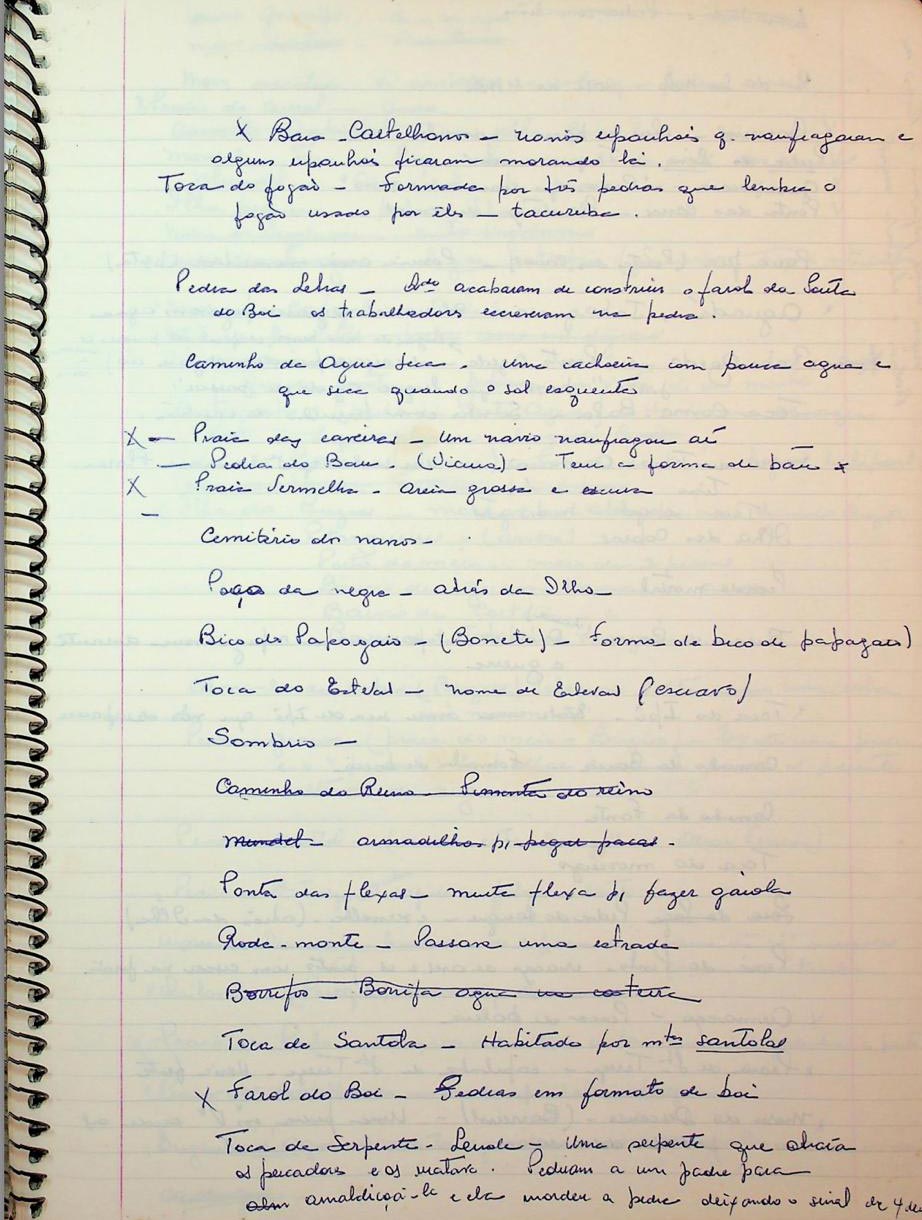 X Baia - Castelhanos - navios espanhois q. naufragaram e
alguns espanhois ficaram morando lá.
Toca do fogão - Formada por três pedras que lembra o
fogão usado por êles - tacuruba.
Pedra das Letras - Qdo acabaram de construir o farol da Ponta
do Boi os trabalhadores escreveram na pedra.
Caminho da Agua Seca - uma cachoeira com pouca agua e
que seca quando o sol esquenta
X - Praia das - um navio naufragou aí
- Pedra do Bau - Tem a forma de báu x
X Praia Vermelha - areia grossa e escura
-
Cemitério dos navios -
Poço da negra - atrás da Ilha -
Bico do Papagaio - (Bonete) - Forma de bico de papagaio)
Toca do Estevão - nome de Estevão (escravo)
Sombrio -
Caminho do Reino - Pimenta do reino
Mundel - armadilhas p/ pegar pacas -
Ponta das flexas - muita flexa p/ fazer gaiola
Roda-monte - Passava uma estrada
Borrifos - Borrifa agua na costeira
Toca de Santola - Habitado por mtas santolas
X Farol do Boi - Pedras em formato de boi
Toca da Serpente - Lenda - Uma serpente que atraía
os pescadores e os matava. Pediram a um padre para
amaldiçoá-la e ela mordeu a pedra deixando o sinal de 4